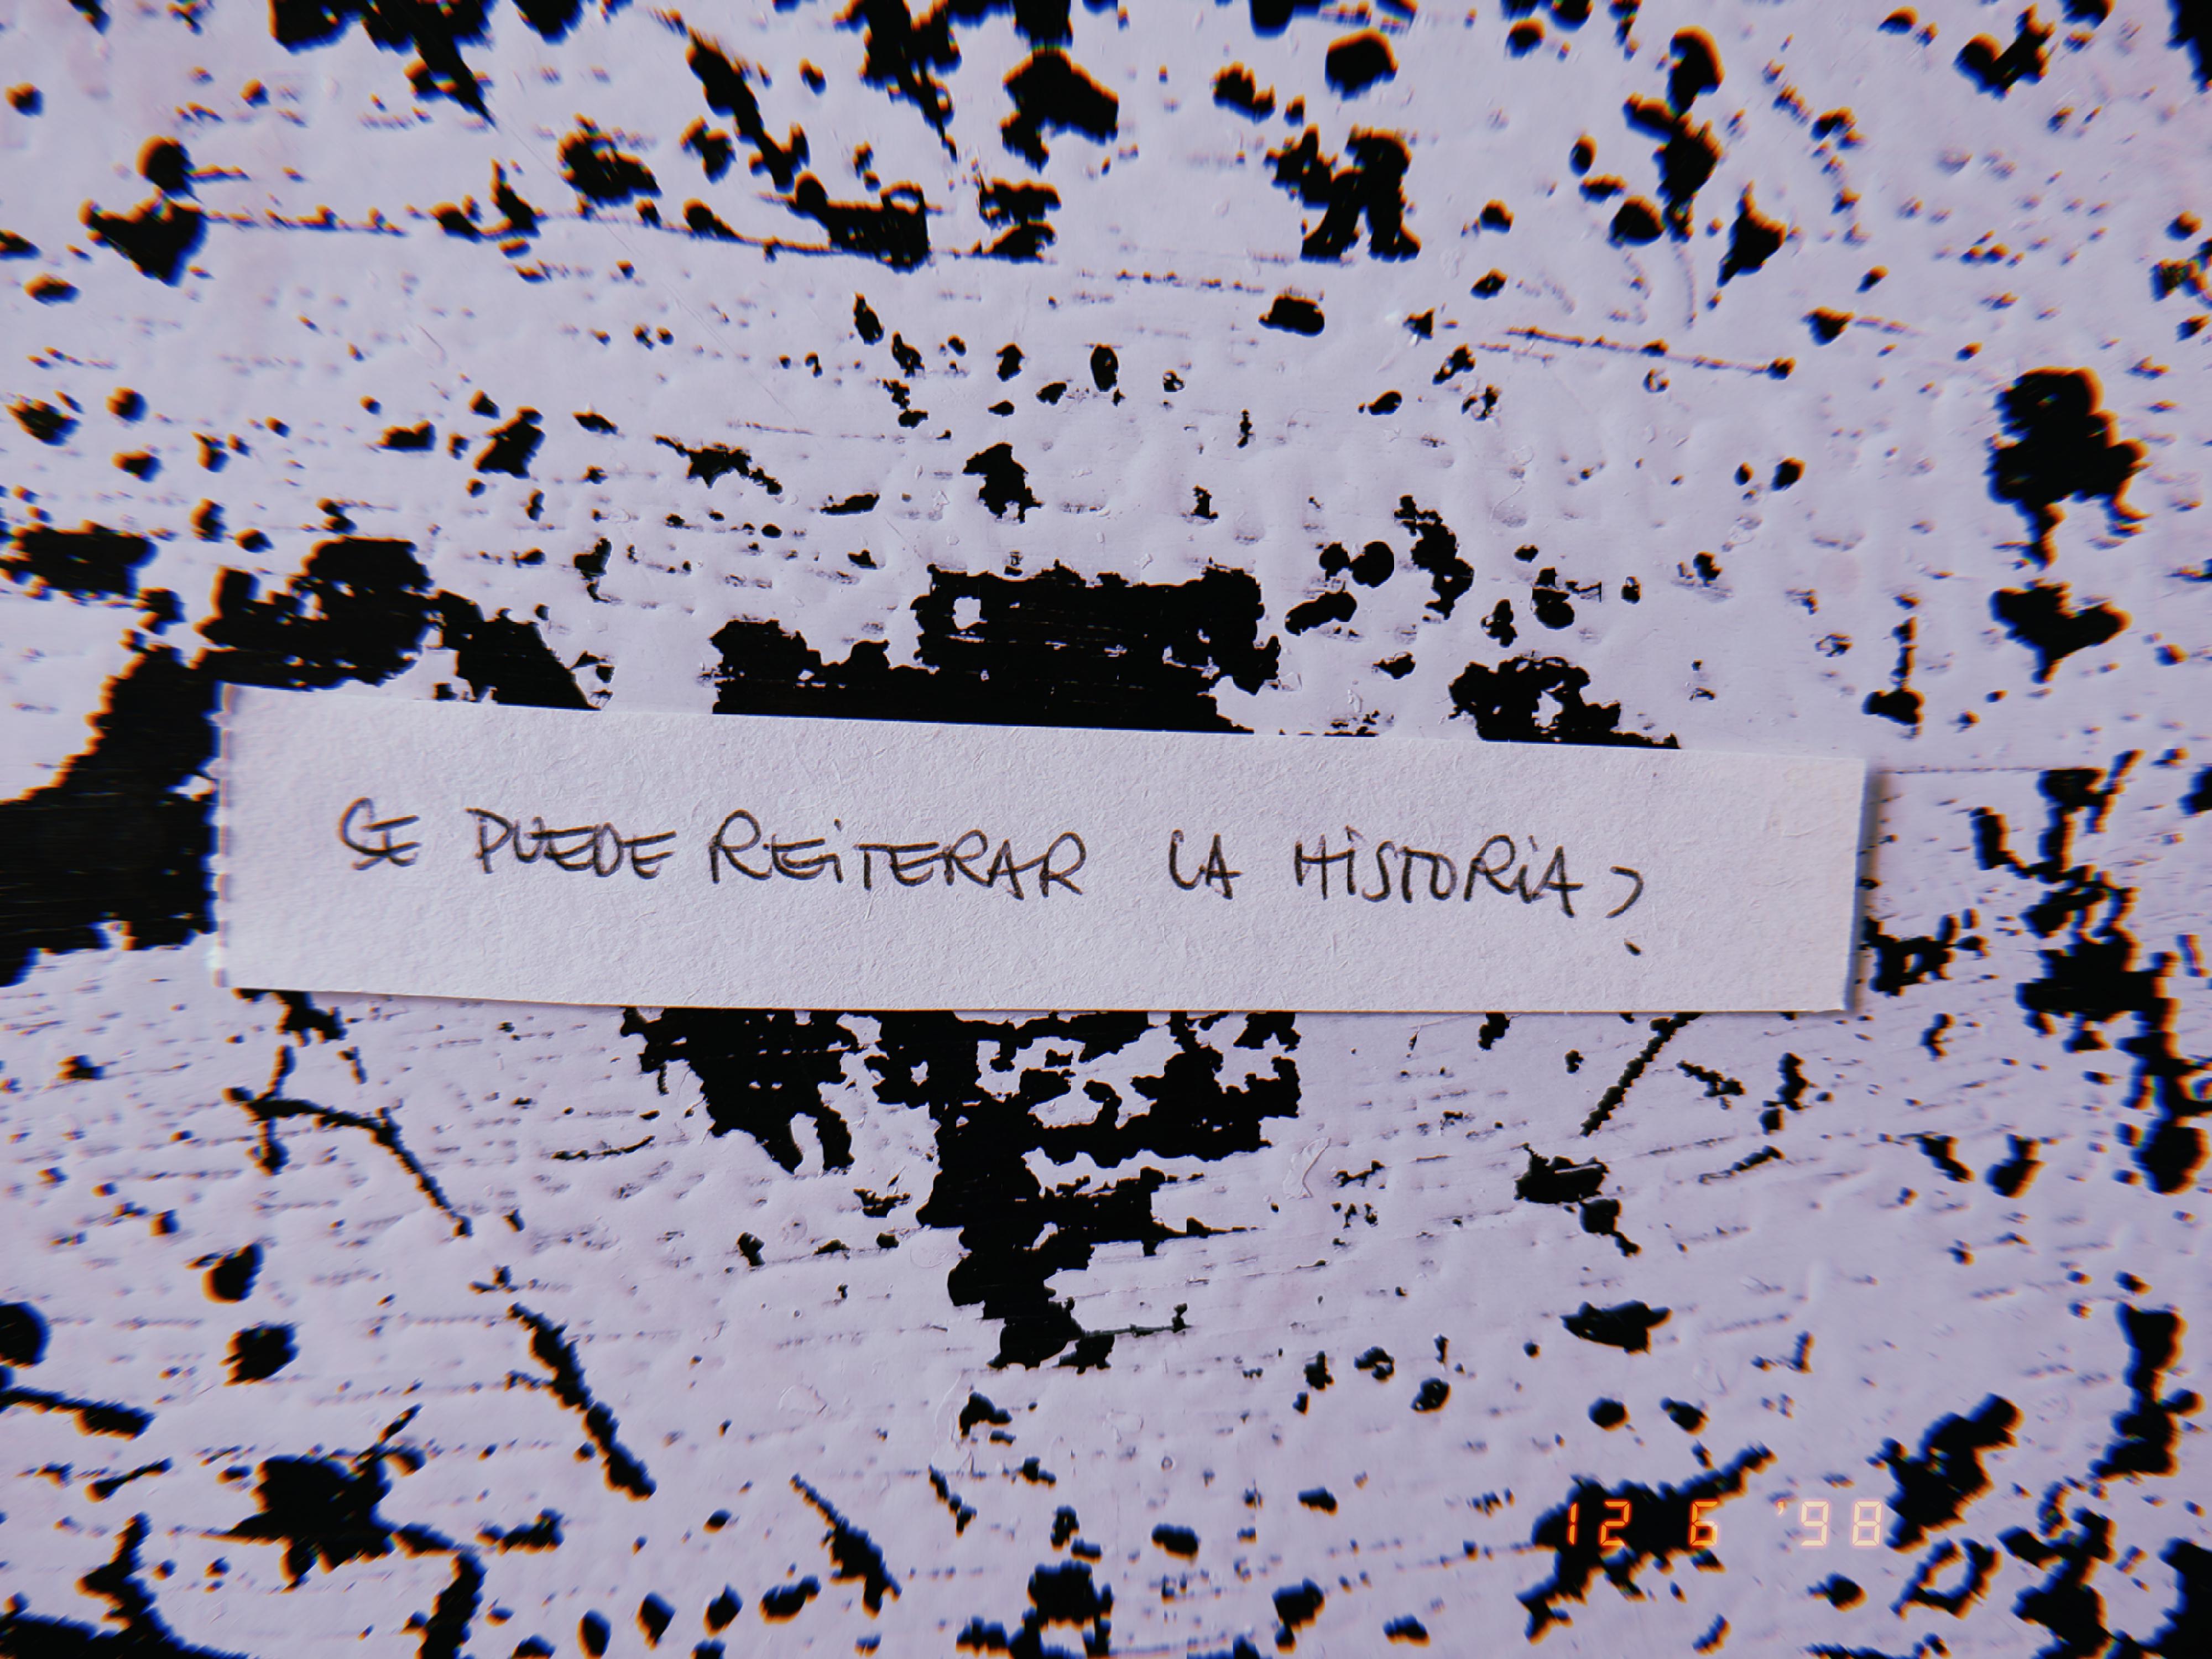 SE PUEDE REITERAR LA HISTORIA?
12 6 '98